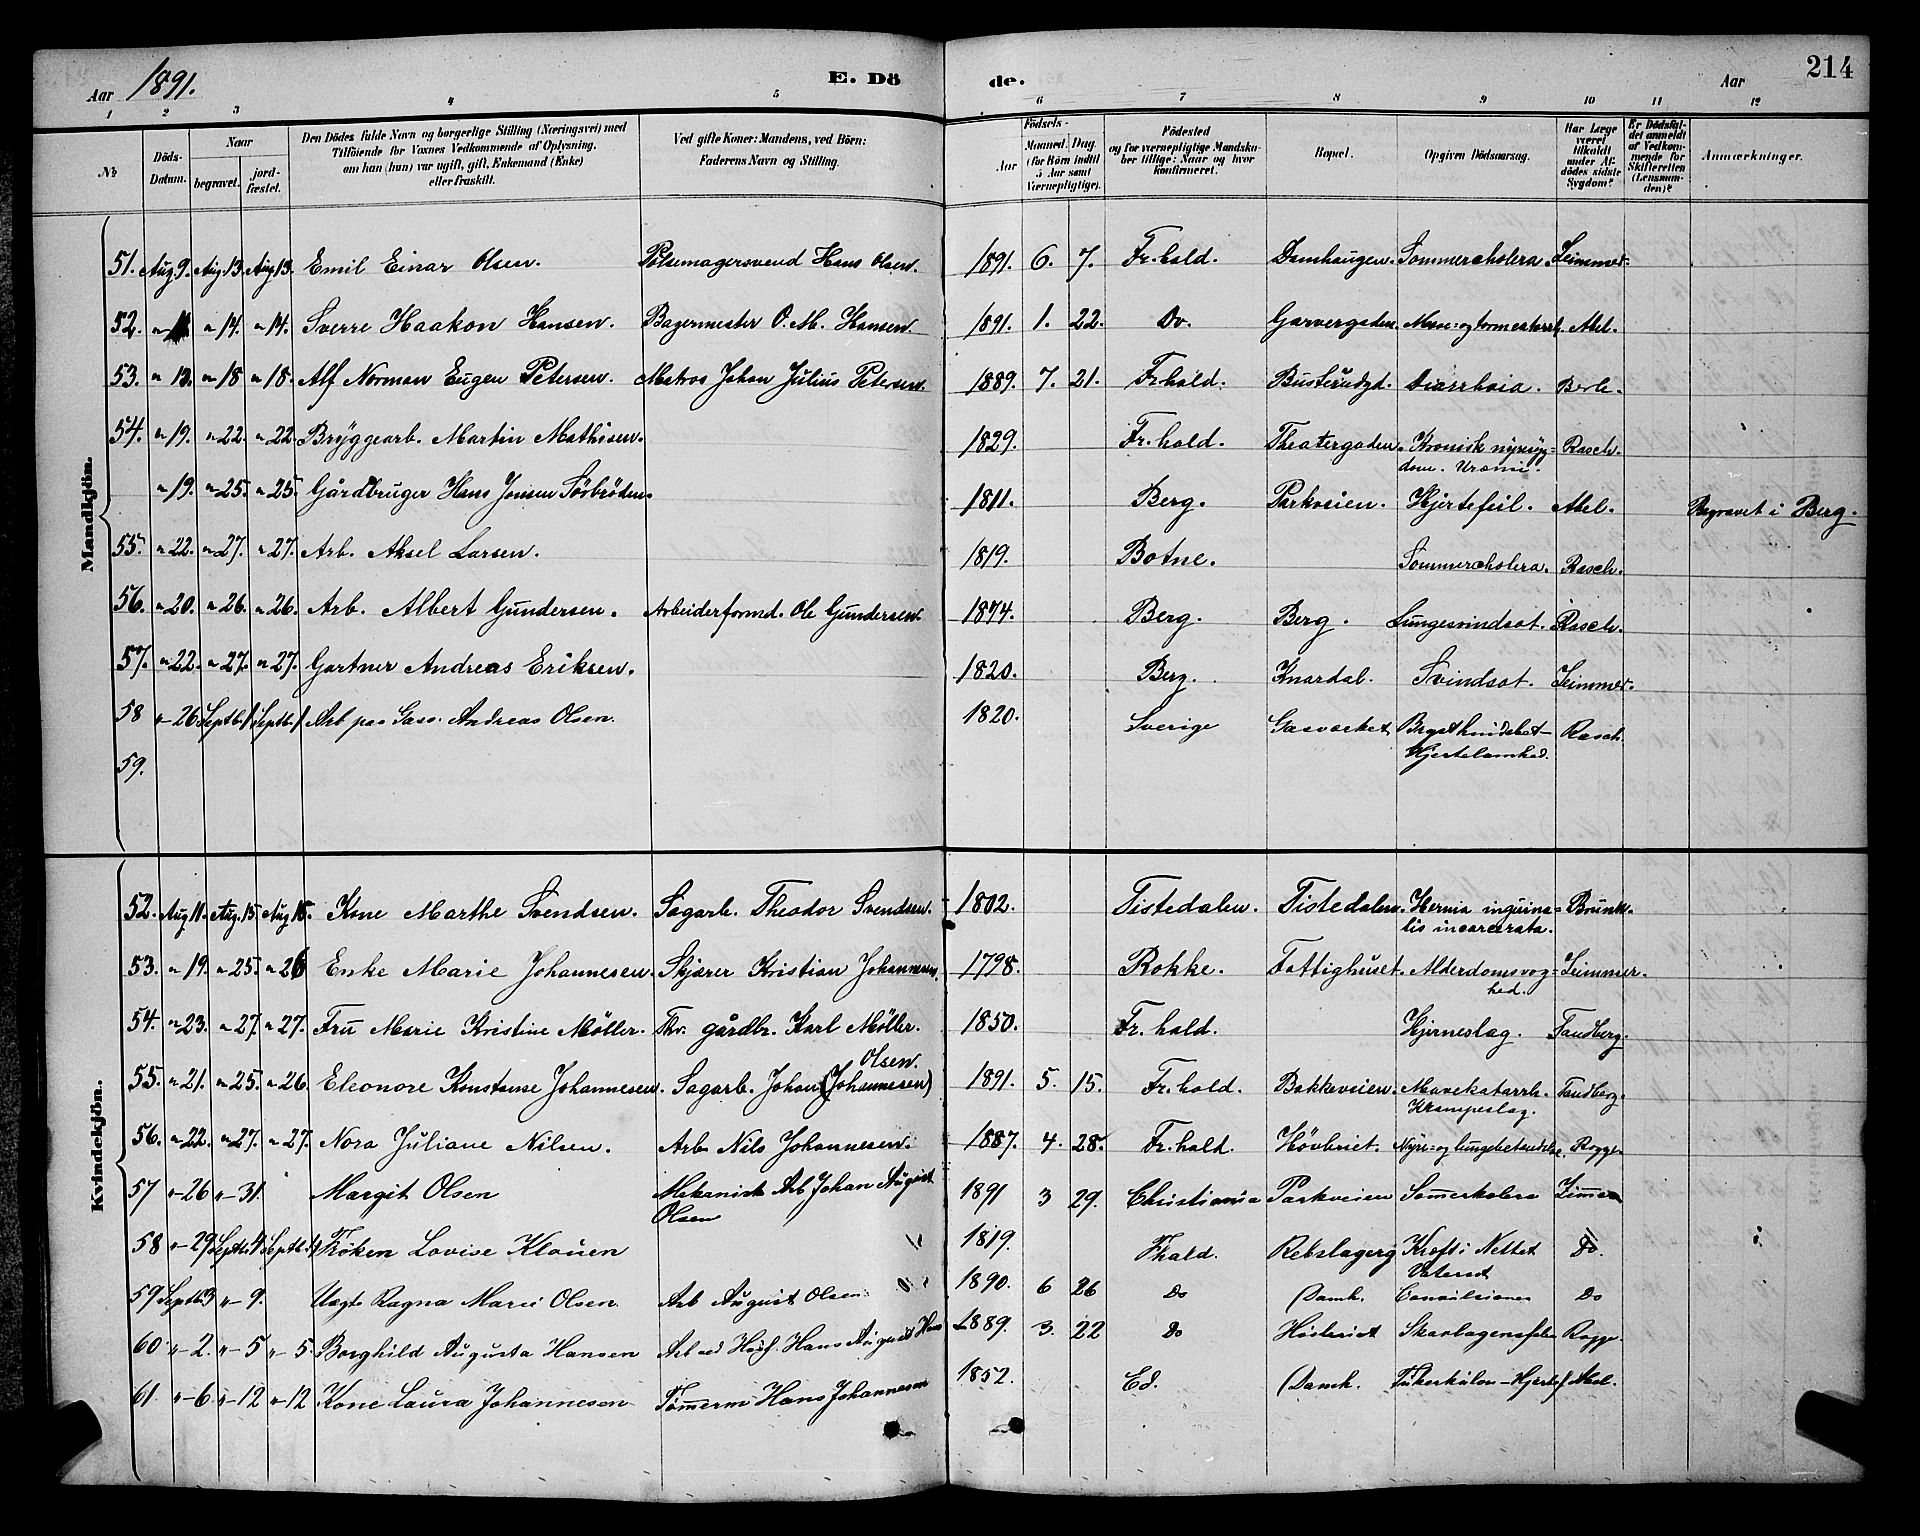 Aar 1891. E. Dö de. Aar 214
1 2 3 4 5 6 7 8 9 10 11 12
№ Döds-Datum. Naar begravet. jordfæstet. Den Dödes fulde Navn og borgerlige Stilling (Næringsvei) med Tilföiende for Voxnes Vedkommende af Oplysning, om han (hun) var ugift, gift, Enkemand (Enke) eller fraskilt. Ved gifte Koner: Mandens, ved Börn: Faderens Navn og Stilling. Födsels- Aar Maaned. Dag. (for Börn indtil 5 Aar samt Værnepligtige). Födested og for værnepligtige Mandskaber tillige: Naar og hvor konfirmeret. Bopæl. Opgiven Dödsaarsag. Har Læge været tilkaldt under Afdödes sidste Sygdom? Er Dödsfaldet anmeldt af Vedkommende for Skifteretten (Lensmanden)? Anmærkninger.
Mandkjön.
51. Aug 9. Aug 13. Aug 13. Emil Einar Olsen. Pölsemagersvend Hans Olsen. 1891. 6. 7. Fr.hald. Damhaugen. Sommercholera.
52. " " 14. " 14. Sverre Haakon Hansen. Bagermester O. M. Hansen. 1891. 1. 22. Do. Garvergaden. Abel.
53. " " 18 " 18. Alf Norman Eugen Petersen. Matros Johan Julius Petersen. 1889. 7. 21. Fr.hald. Busterudgd. Diarrhoia.
54. " 19. " 22. " 22. Bryggearb. Martin Mathisen. 1829. Fr.hald. Theatergaden. Kronisk nyresyg=
dom. Uræmi. Rasch.
" 19. " 25. " 25. Gårdbruger Hans Jensen Sörbröden. 1811. Berg. Parkveien. Hjertefeil. Abel. Begravet i Berg.
55. " 22. " 27. " 27. Arb. Aksel Larsen. 1819. Botne. Sommercholera. Rasch.
56. " 20. " 26. " 26. Arb. Albert Gundersen. Arbeiderformd. Ole Gundersen. 1874. Berg. Berg. Lungesvindsot. Rasch.
57. " 22. " 27. " 27. Gartner Andreas Eriksen. 1820. Berg. Knardal. Svindsot.
58 " 26 Septb. 1 Septb. 1 Arb paa Gass. Andreas Olsen. 1820. Sverige Gasværket Brysthindebet-
Hjertelamhed. Rasch.
59.
Kvindekjön.
52. Aug 11. Aug. 15. Aug 15. Kone Marthe Svendsen. Sagarb. Theodor Svendsen. 1802. Tistedalen. Tistedalen. Hernia inguina=
lis incarcerata.
53. " 19. " 25. " 26 Enke Marie Johannesen. Skjærer Kristian Johannesen. 1798. Rokke. Fattighuset. Alderdomssvag=
hed.
54. " 23. " 27. " 27. Fru Marie Kristine Möller. Fhv. gårdbr. Karl Möller. 1850. Fr.hald. Hjerneslag. Tandberg.
Olsen.
55. " 21. " 25. " 26 Eleonore Konstanse Johannesen. Sagarb. Johan (Johannesen) 1891. 5. 15. Fr.hald. Bakkeveien. Mavekatarrh.
Krampeslag. Tandberg.
56. " 22. " 27. " 27. Nora Juliane Nilsen. Arb. Nils Johannesen. 1887. 4. 28. Fr.hald. Nyre- og lungebetændelse. Rogge.
57 " 26 " 31. Margit Olsen Mekanisk Arb Johan August
Olsen 1891 3 29. Christiania Parkveien Somerkolera
58 " 29 Septb. 4 Septb. 4 Fröken Lovise Klouen 1819. Fhald. Rebslagerg Kræft i Do.
59 Septb. 3 " 9. Ragna Marie Olsen Arb August Olsen 1890. 6 26 Do Damh. Convulsioner Do
60 " 2. " 5 " 5. Borghild Augusta Hansen Hans August 1889. 3. 22 Do Rogge.
61. " 6. " 12 " 12 Kone Laura Johannesen Tömerm Hans Johannesen 1852. Ed. Damh. Abel.